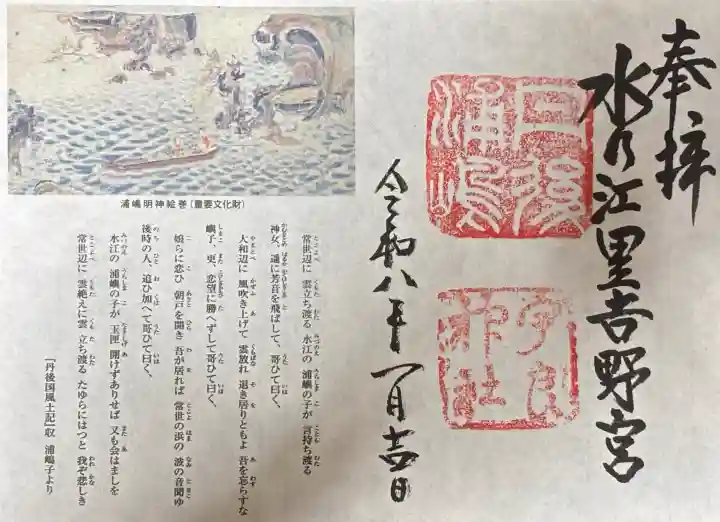 奉拝
水乃江里吉野宮
丹後
浦嶋
令和八年一月吉日
浦嶋明神絵巻(重要文化財)
常世辺に 雲立ち渡る 水江の 浦嶼の子が 言持ち渡る
神女、遥に芳音を飛ばして、哥ひて曰く、
大和辺に 風吹き上げて 雲放れ 退き居りともよ 吾を忘らすな
嶼子、更、恋望に勝へずして哥ひて曰く、
娘らに恋ひ 朝戸を開き 吾が居れば 常世の浜の 波の音聞ゆ
後時の人、追ひ加へて哥ひて曰く、
水江の 浦嶼の子が 玉匣 開けずありせば 又も会はましを
常世辺に 雲絶えに雲 立ち渡る たゆらにはつと 我ぞ悲しき
「丹後国風土記」収 浦嶋子より